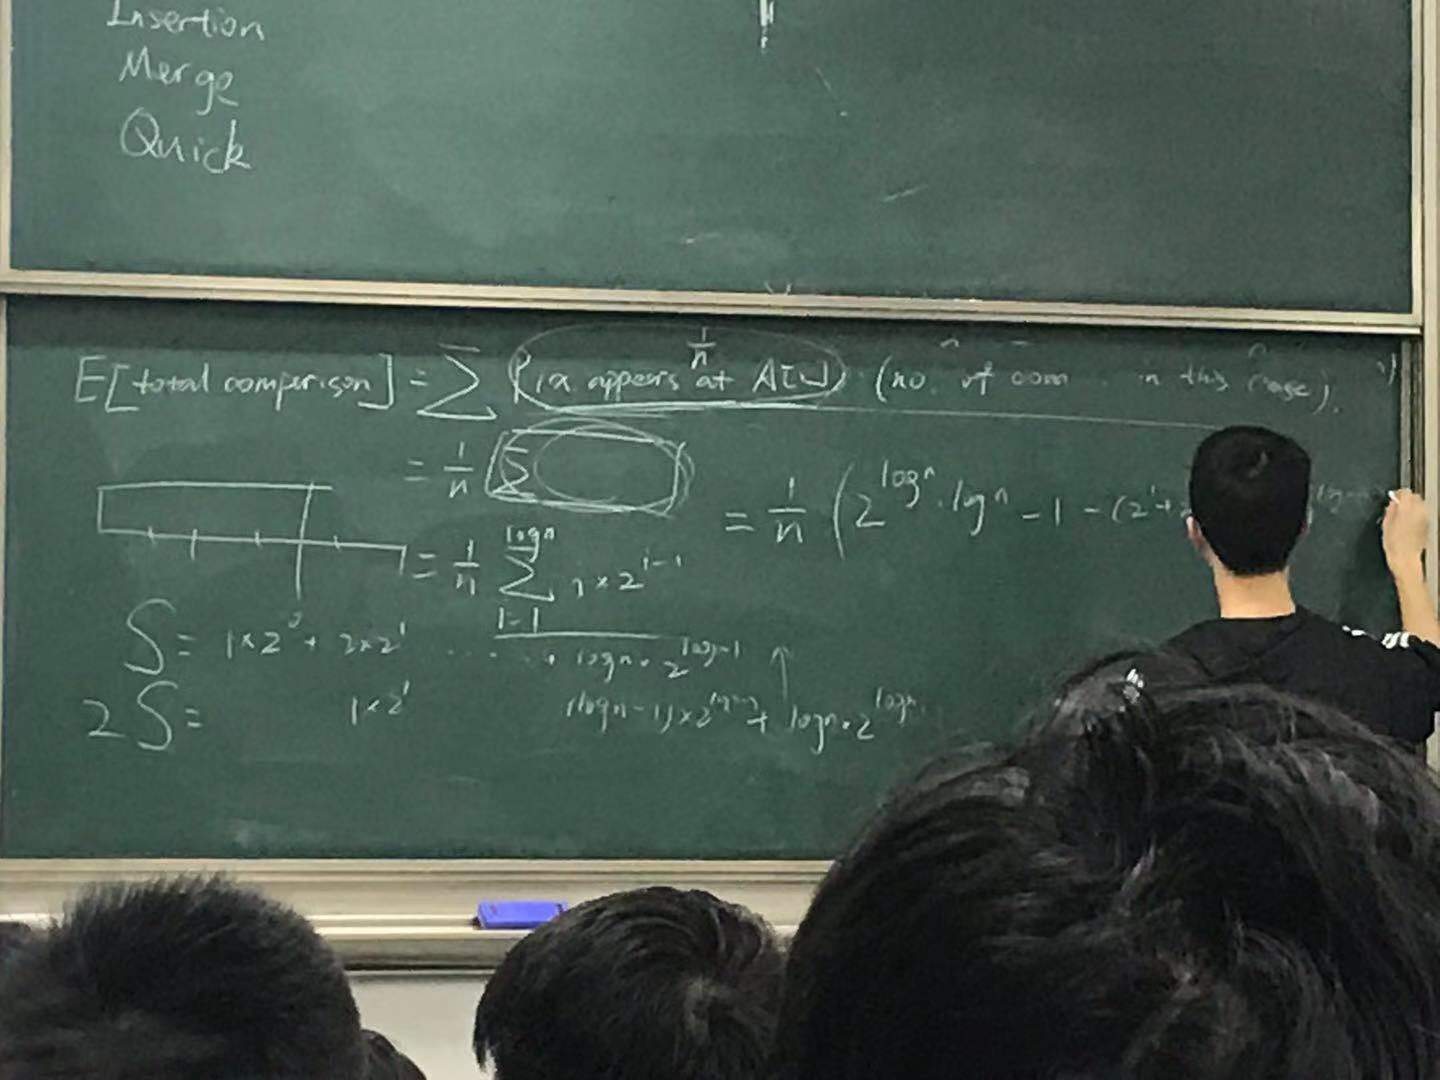 Insertion
Merge
Quick
E[total comparison] = ∑ (x appears at A[i]) 1/n · (no. of com in this case).
= 1/n ∑
= 1/n (2^logn · logn - 1 - (2^1 + 2
= 1/n ∑ logn i=1 i × 2^i-1
S = 1×2^0 + 2×2^1 ...... + logn · 2^logn-1
2S = 1×2^1 (logn-1)×2^logn-1 + logn · 2^logn